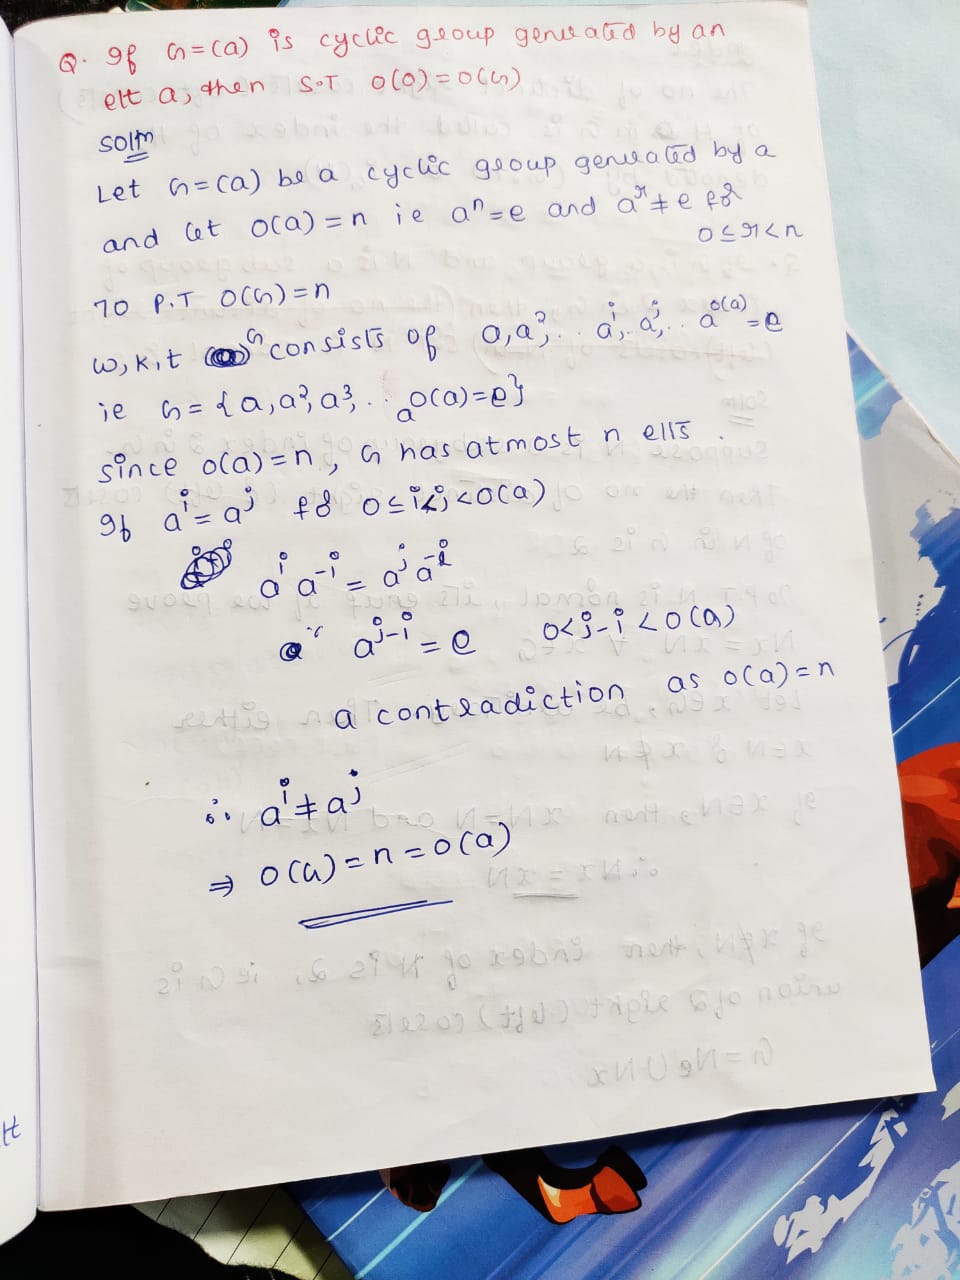 Q. If G=(a) is cyclic group generated by an
elt a, then S.T O(a)=O(G)
Soln
Let G=(a) be a cyclic group generated by a
and let O(a)=n ie aⁿ=e and aʳ≠e for
0≤r<n
To P.T O(G)=n
W.k.t G consists of a,a²,.. aⁱ, aʲ,.. a^O(a)=e
ie G={a,a²,a³,... a^O(a)=e}
since O(a)=n, G has atmost n elts.
If aⁱ=aʲ for 0≤i<j<O(a)
aⁱ a⁻ⁱ = aʲ a⁻ⁱ
aʲ⁻ⁱ = e 0<j-i<O(a)
a contradiction as O(a)=n
∴ aⁱ≠aʲ
⇒ O(G)=n=O(a)